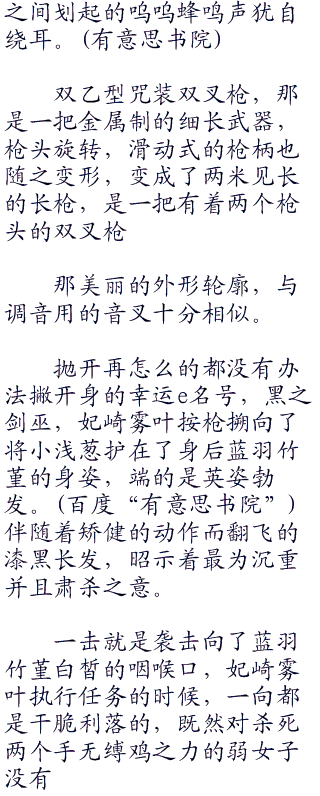 之间划起的呜呜蜂鸣声犹自
绕耳。(有意思书院)
双乙型咒装双叉枪，那
是一把金属制的细长武器，
枪头旋转，滑动式的枪柄也
随之变形，变成了两米见长
的长枪，是一把有着两个枪
头的双叉枪
那美丽的外形轮廓，与
调音用的音叉十分相似。
抛开再怎么的都没有办
法撇开身的幸运e名号，黑之
剑巫，妃崎雾叶按枪搠向了
将小浅葱护在了身后蓝羽竹
堇的身姿，端的是英姿勃
发。(百度“有意思书院”)
伴随着矫健的动作而翻飞的
漆黑长发，昭示着最为沉重
并且肃杀之意。
一击就是袭击向了蓝羽
竹堇白皙的咽喉口，妃崎雾
叶执行任务的时候，一向都
是干脆利落的，既然对杀死
两个手无缚鸡之力的弱女子
没有